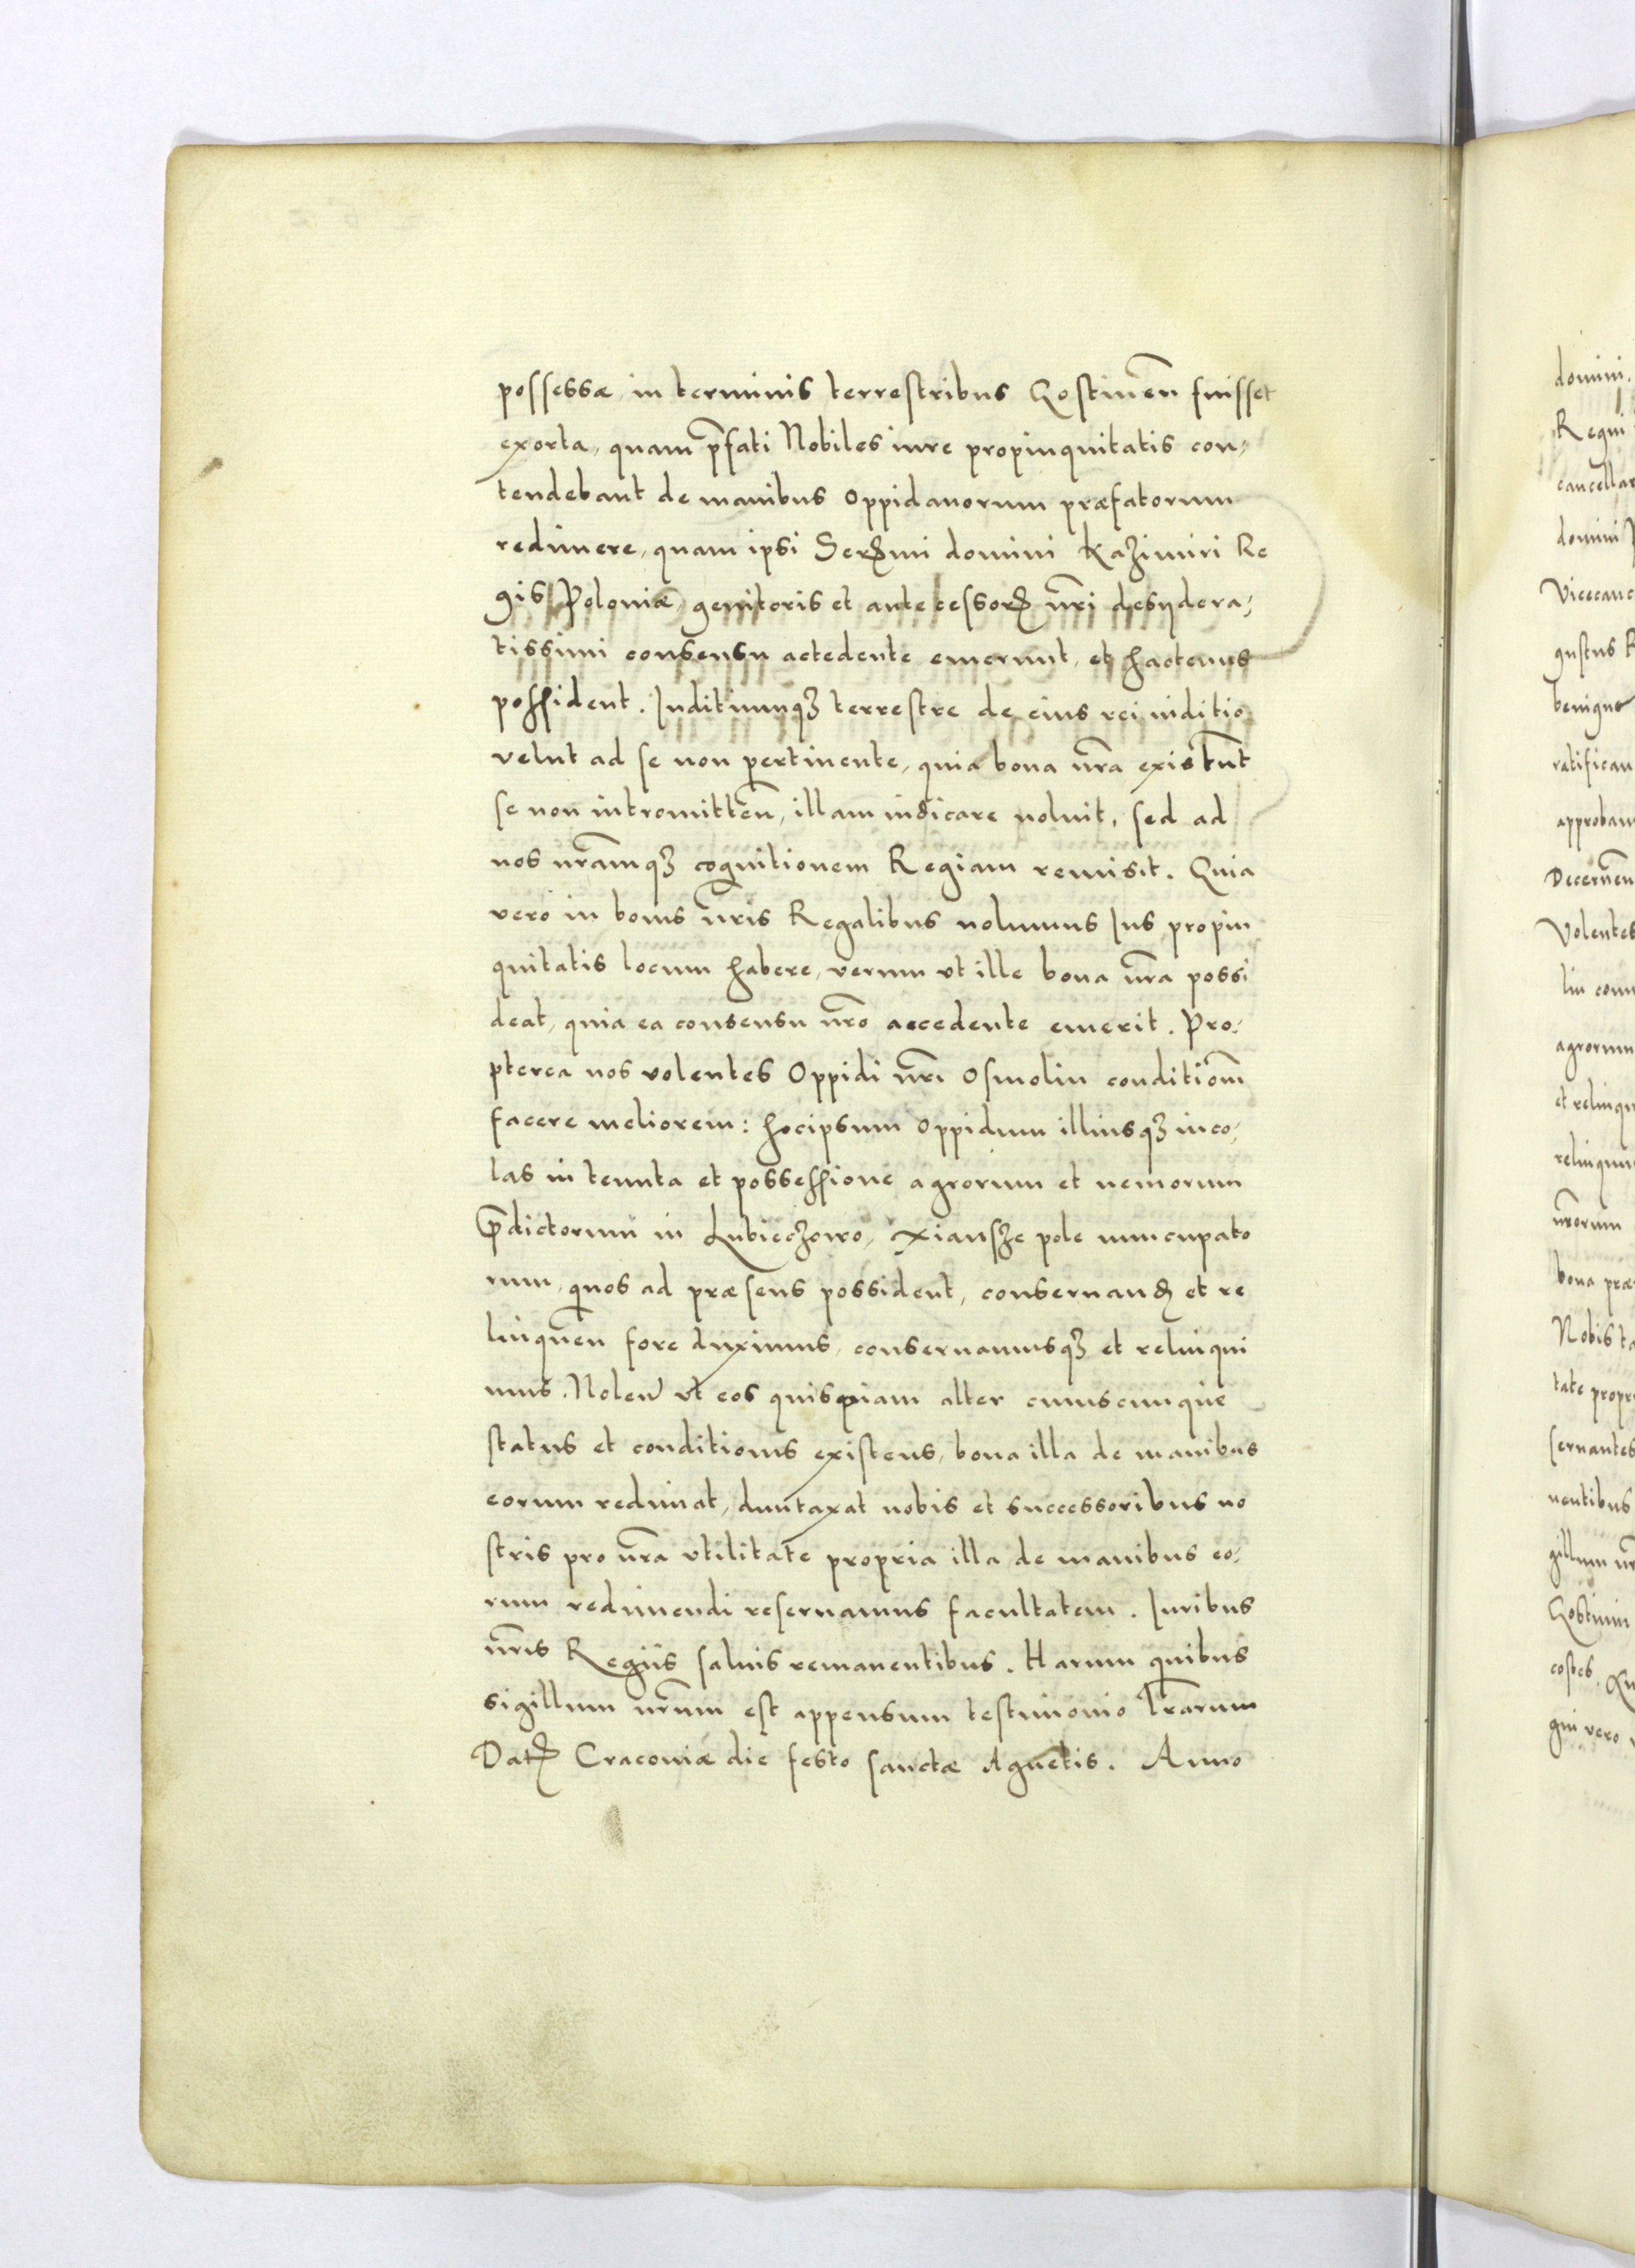 possessæ, in terminis terrestribus Gostinen̄ fuisset
exorta, quam p̄fati Nobiles iure propinquitatis con-
tendebant de manibus oppidanorum præfatorum
redimere, quam ipsi Serꝫmi domini Kazimiri Re
gis Poloniæ, genitoris et antecessorꝫ n̄ri desydera-
tissimi consensu accedente emerunt, et hactenus
possident. Juditiumqꝫ terrestre de eius rei iuditio
velut ad se non pertinente, quia bona n̄ra existūt
se non intromitten̄, illam iudicare noluit, sed ad
nos n̄ramqꝫ cognitionem Regiam remisit. Quia
vero in bonis n̄ris Regalibus nolumus Jus propin
quitatis locum habere, verum vt ille bona n̄ra possi
deat, quia ea consensu n̄ro accedente emerit. Pro-
pterea nos volentes Oppidi n̄ri Osmolin conditiom̄
facere meliorem: hocipsum oppidum illiusqꝫ inco-
las in tenuta et possessione agrorum et nemorum
p̄dictorum in Lubieczowo, Xiansze pole nuncupato
rum, quos ad præsens possident, conseruanꝺ et re
linquen̄ fore duximus, conseruamusqꝫ et relinqui
mus. Nolen̄ vt eos quispiam alter cuiuscunque
status et conditionis existens, bona illa de manibus
eorum redimat, duntaxat nobis et successoribus no
stris pro n̄ra vtilitate propria illa de manibus eo-
rum redimendi reseruamus facultatem. Juribus
n̄ris Regiis saluis remanentibus. Harum quibus
sigillum n̄rum est appensum testimonio l̄rarum
Datꝫ Cracouiæ die festo sanctæ Agnetis. Anno
domini.
Regni
cancellar
domini
Vicecanc
gustus R
benigne
ratifican
approbam
Decernen̄
Volentes
lin com
agrorum
et relinqu
relinqun
n̄rorum
bona præ
Nobis ta
tate propr
seruantes
nentibus
gillum n̄r
Gostinin
costes. Qu
gni vero